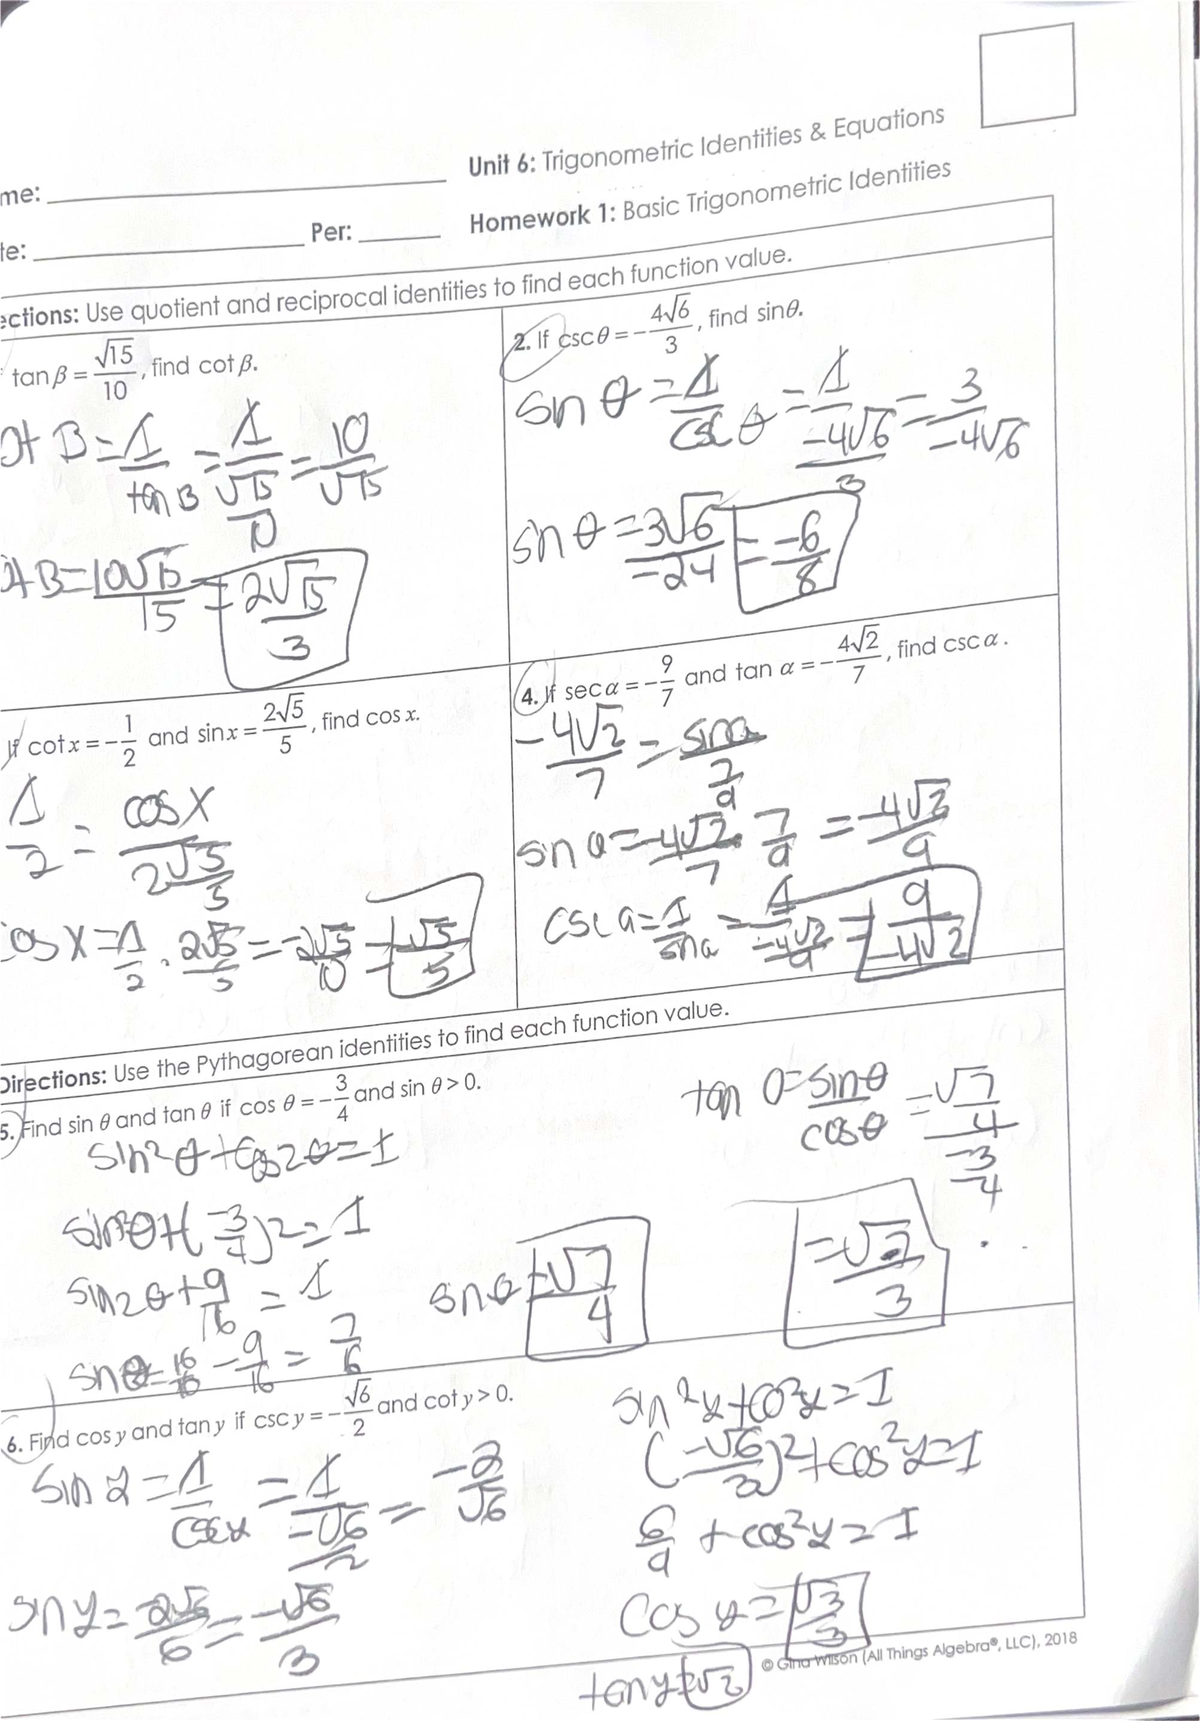 Unit 6: Trigonometric Identities & Equations
me:
Homework 1: Basic Trigonometric Identities
te:
Per:
ections: Use quotient and reciprocal identities to find each function value.
tan β = √15/10, find cot β.
ot B = 1/tan B = 1/(√15/10) = 10/√15
ot B = 10√15/15 = 2√15/3
2. If csc θ = -4√6/3, find sin θ.
sin θ = 1/csc θ = 1/(-4√6/3) = 3/-4√6
sin θ = 3√6/-24 = -6/8
If cot x = -1/2 and sin x = 2√5/5, find cos x.
1/2 = cos x/(2√5/5)
cos x = 1/2 · 2√5/5 = -2√5/10 = √5/5
4. If sec α = -9/7 and tan α = -4√2/7, find csc α.
-4√2/7 = sin a/(7/9)
sin a = -4√2/7 · 7/9 = -4√2/9
csc a = 1/sin a = 1/(-4√2/9) = 9/-4√2
Directions: Use the Pythagorean identities to find each function value.
5. Find sin θ and tan θ if cos θ = -3/4 and sin θ > 0.
sin²θ + cos2θ = 1
sin²θ + (-3/4)² = 1
sin2θ + 9/16 = 1
sin θ = 16/16 - 9/16 = 7/6
sin θ = √7/4
tan θ = sin θ/cos θ = (√7/4)/(-3/-4)
= √7/3
6. Find cos y and tan y if csc y = -√6/2 and cot y > 0.
sin y = 1/csc y = 1/(-√6/2) = -2/√6
sin y = -2√6/6 = -√6/3
sin²y + co²y = 1
(-√6/3)² + cos²y = 1
6/9 + cos²y = 1
cos y = √3/3
tan y = √2
© Gina Wilson (All Things Algebra®, LLC), 2018